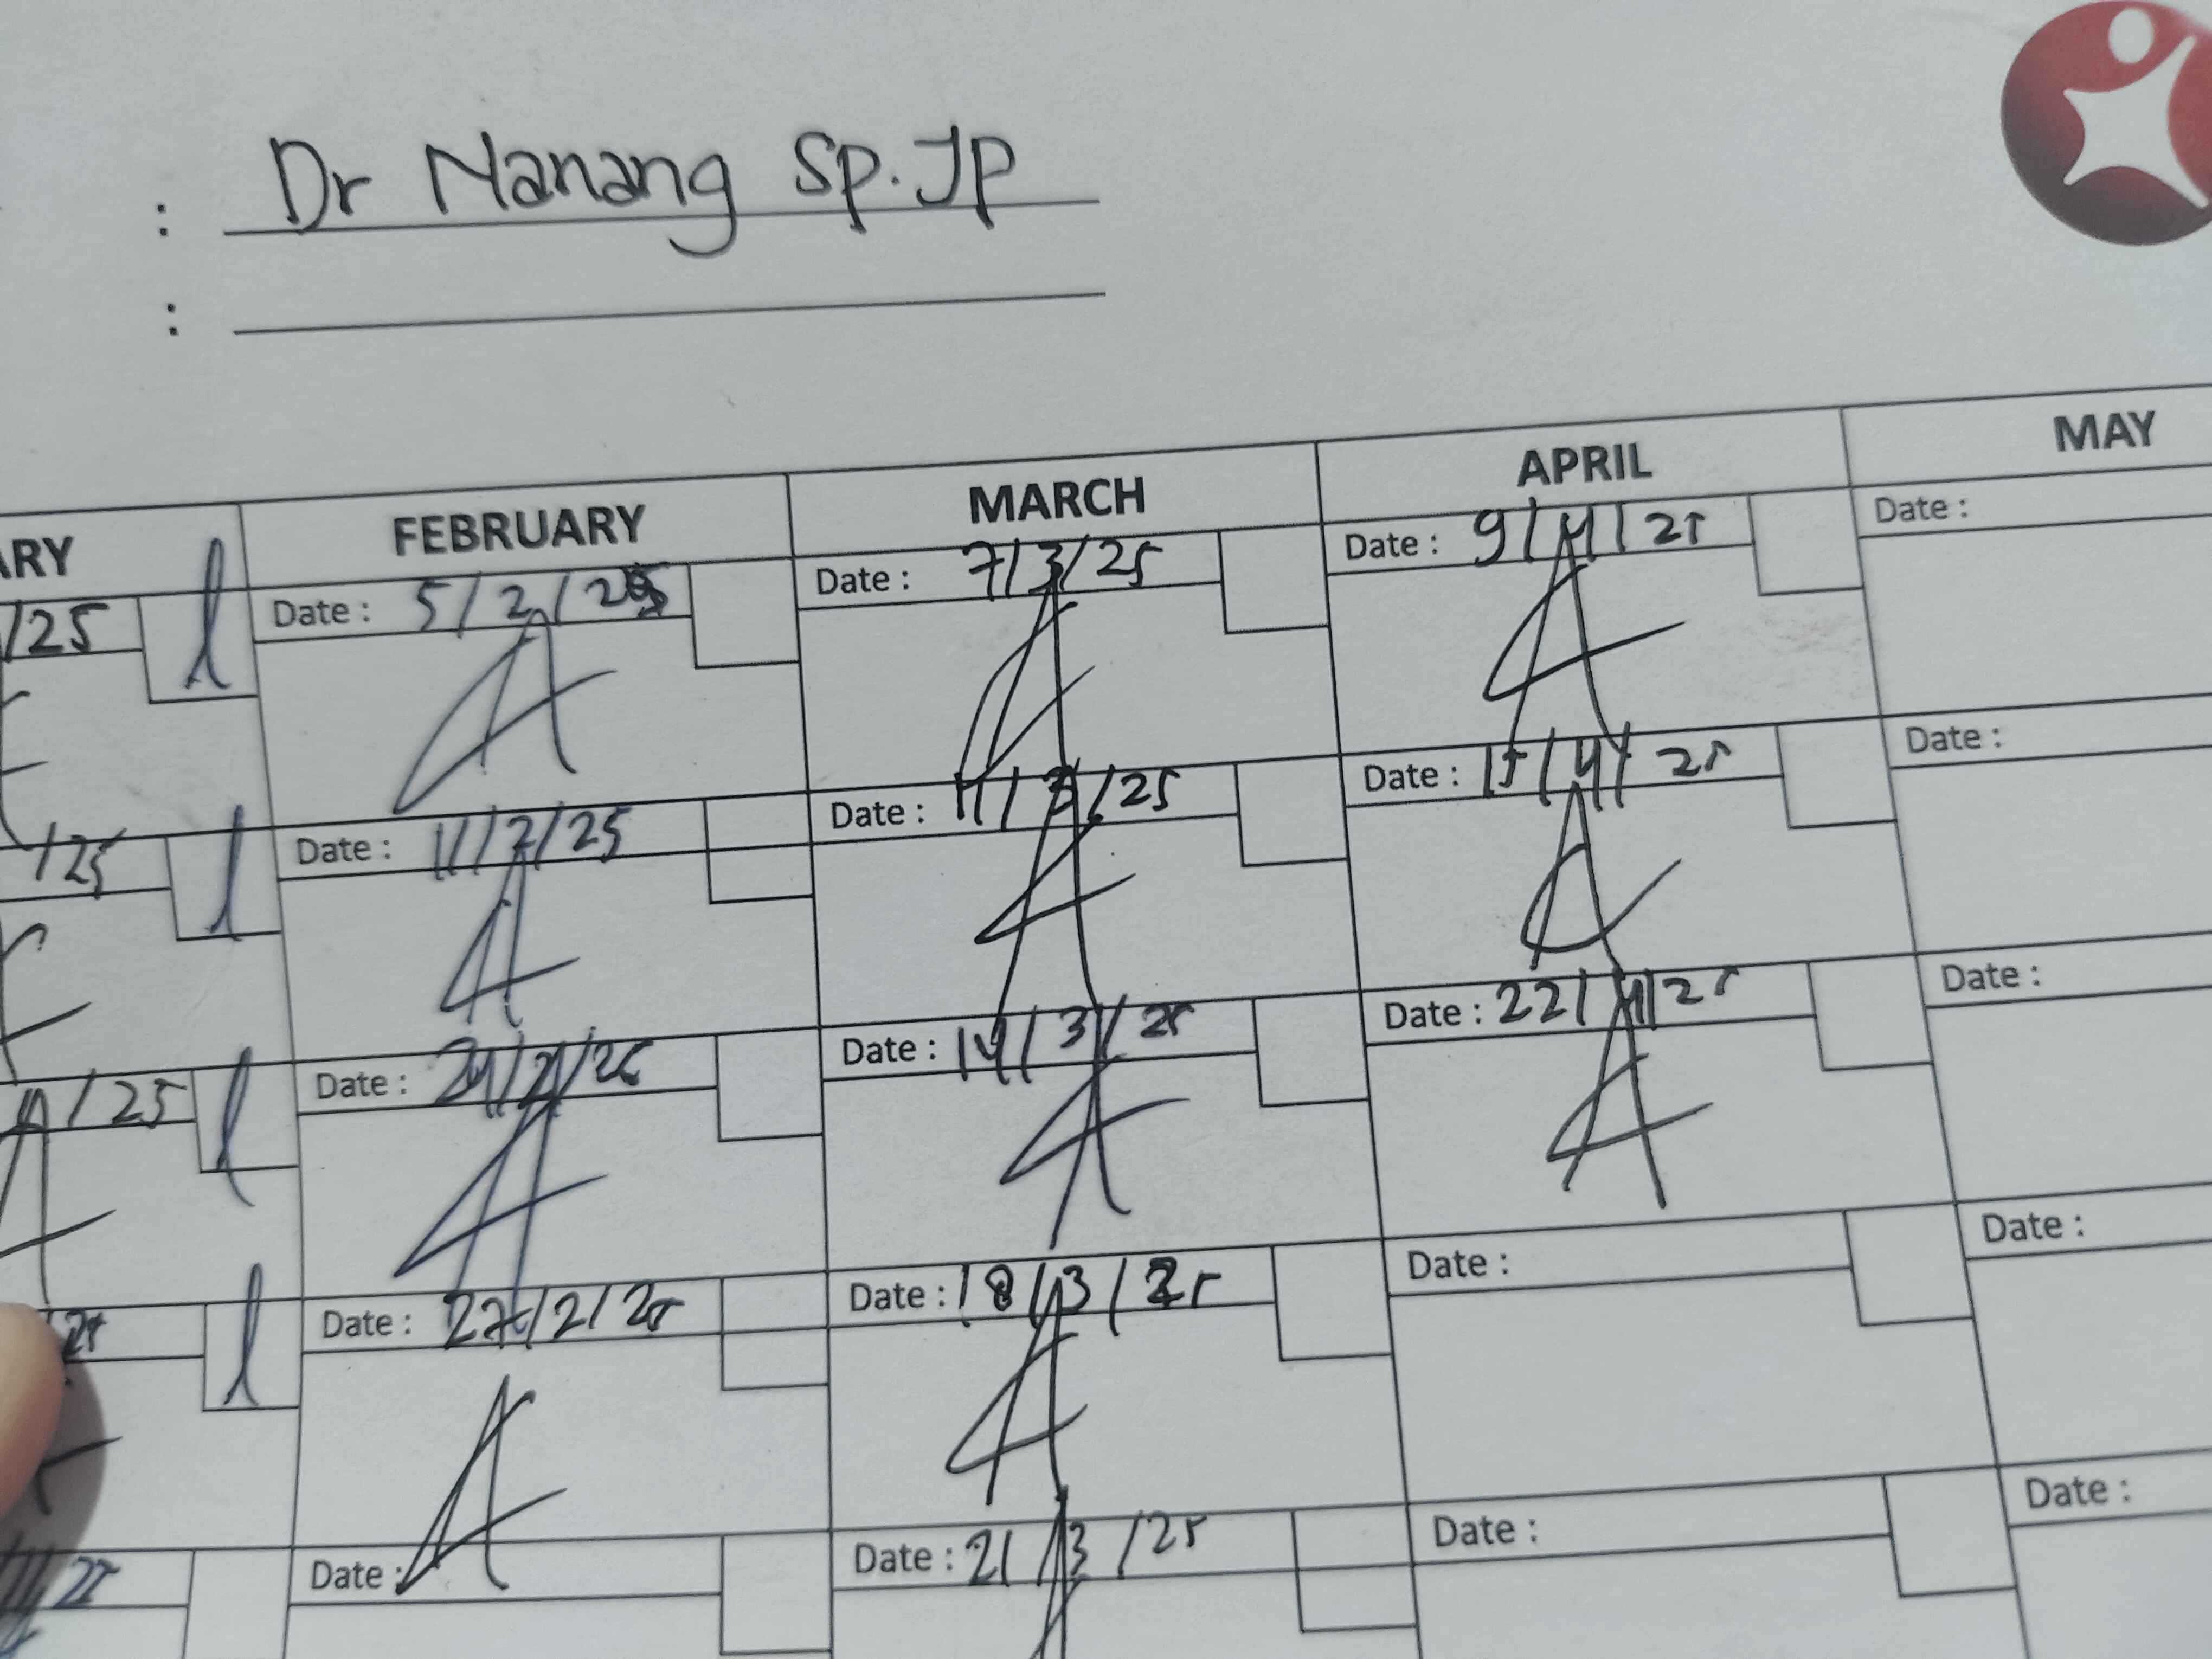 : Dr Nanang Sp.JP
:
ARY FEBRUARY MARCH APRIL MAY
/25 Date : 5/2/25 Date : 7/3/25 Date : 9/4/25 Date :
/25 Date : 11/2/25 Date : 11/3/25 Date : 15/4/25 Date :
/25 Date : Date : 14/3/25 Date : 22/4/25 Date :
25 Date : 27/2/25 Date : 18/3/25 Date : Date :
25 Date : Date : 21/3/25 Date : Date :